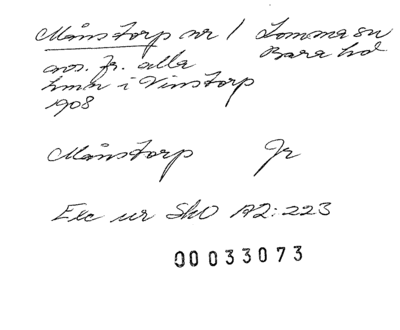 Månstorp nr 1 Lomma sn
avs. fr. alla Bara hd
hmn i Vinstorp
1908
Månstorp Jr
Exc ur SkO A2:223
00033073